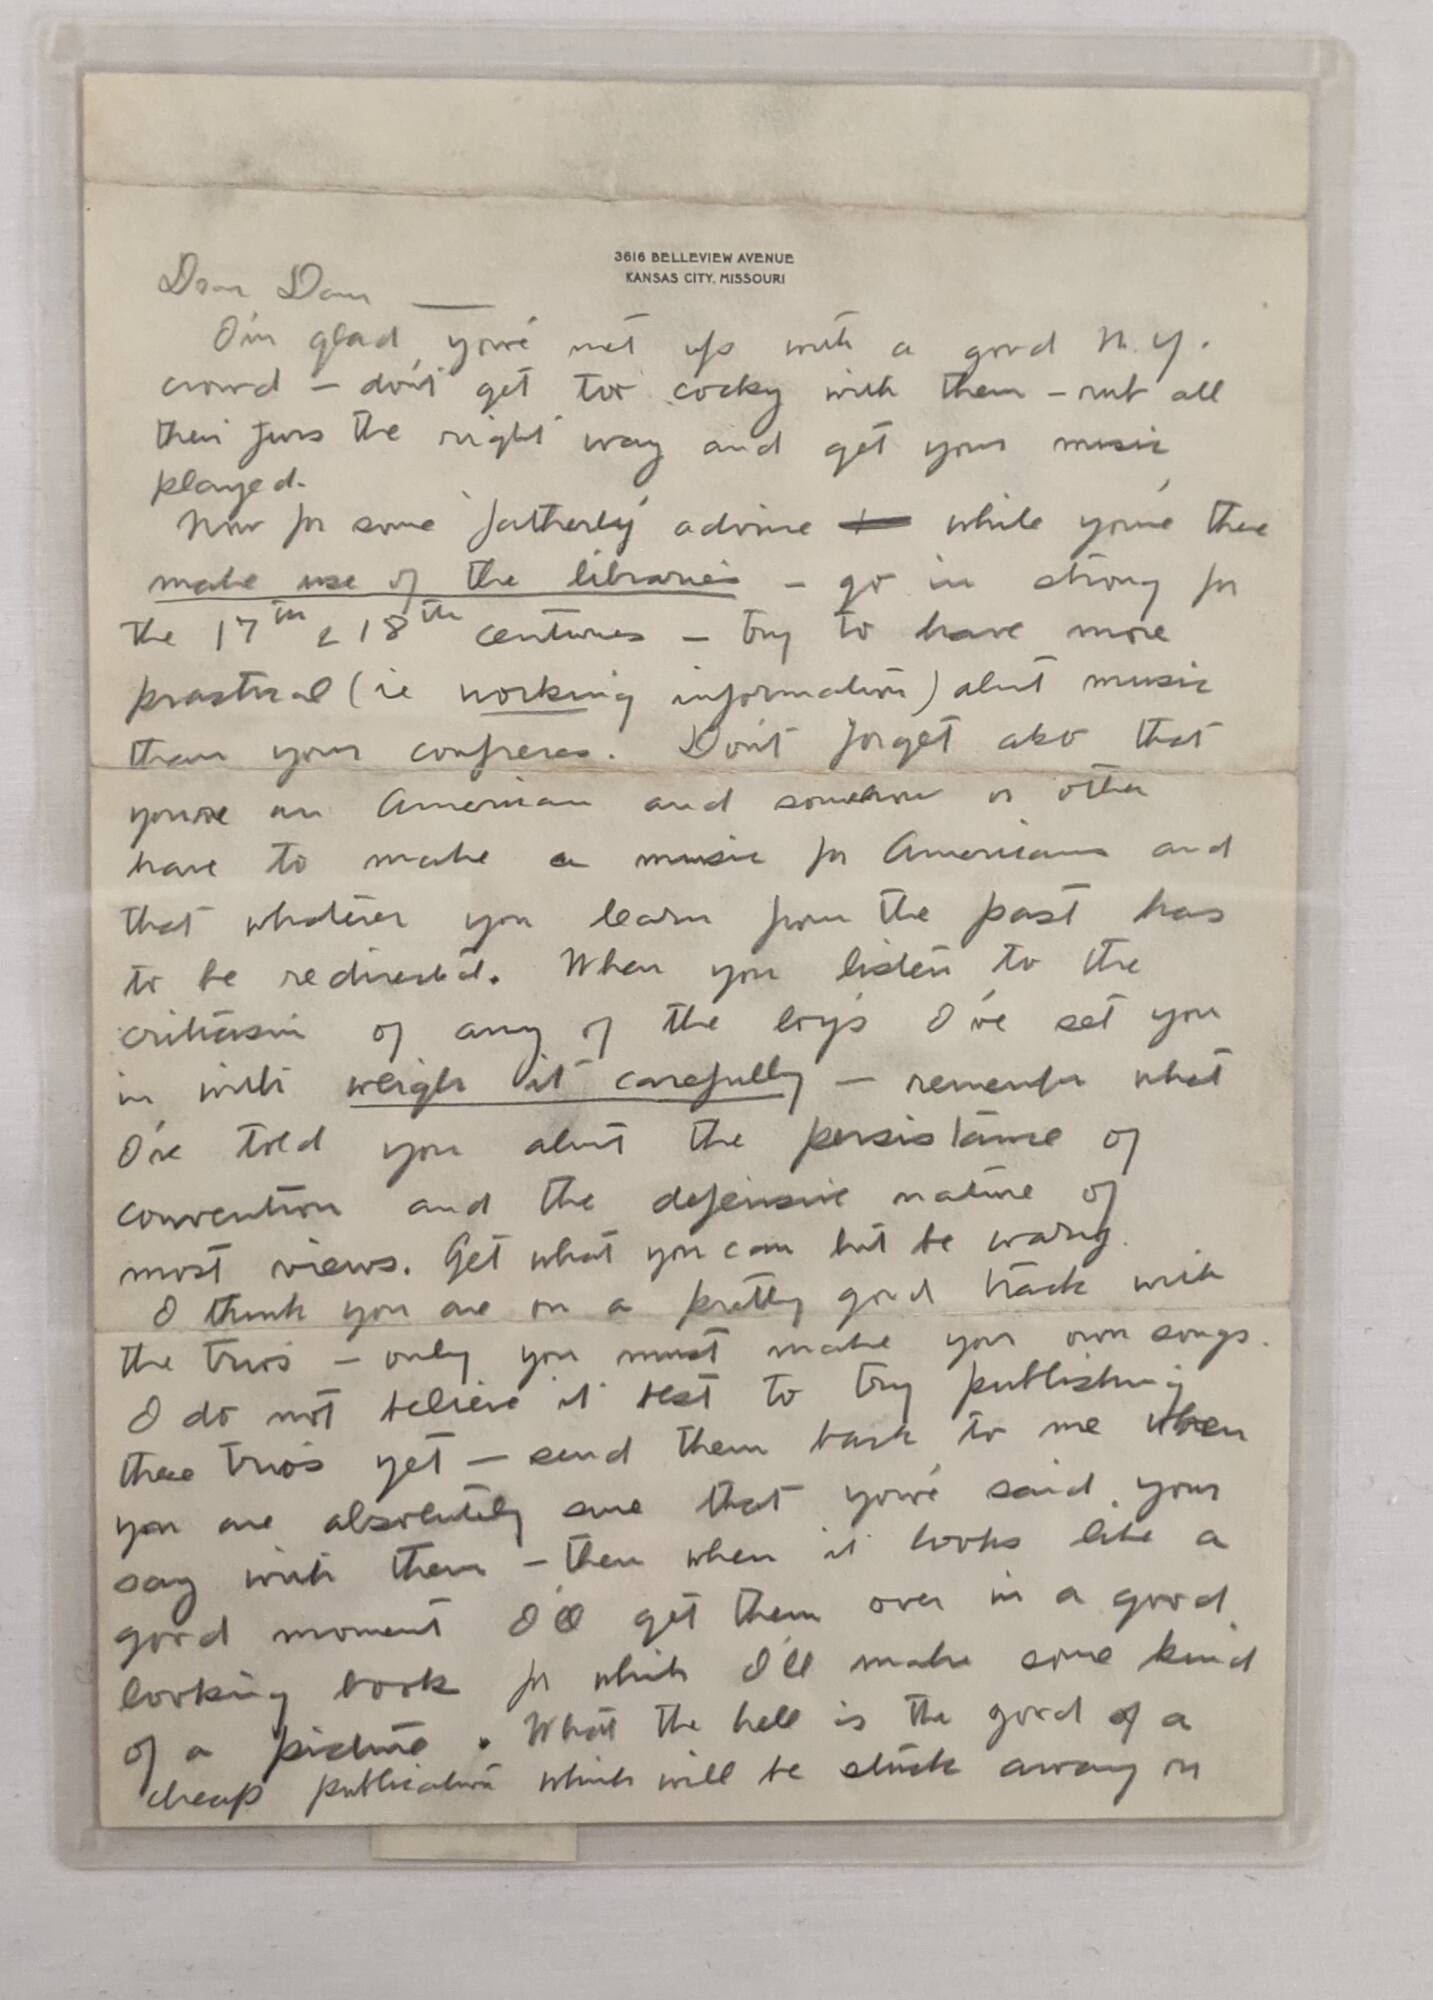 3616 BELLEVIEW AVENUE
KANSAS CITY, MISSOURI
Dear Dan —
I'm glad you've met up with a good N.Y.
crowd – don't get too cocky with them – rub all
their furs the right way and get your music
played.
Now for some 'fatherly' advice while you're there
make use of the libraries – go in strong for
the 17th & 18th centuries – try to have more
practical (ie working information) about music
than your confreres. Don't forget also that
you're an American and somehow or other
have to make a music for Americans and
that whatever you learn from the past has
to be redirected. When you listen to the
criticism of any of the boys I've set you
in with weigh it carefully – remember what
I've told you about the persistance of
convention and the defensive nature of
most views. Get what you can but be wary.
I think you are on a pretty good track with
the trios – only you must make your own songs.
I do not believe it best to try publishing
these trios yet – send them back to me when
you are absolutely sure that you've said your
say with them – then when it looks like a
good moment I'll get them over in a good
looking book for which I'll make some kind
of a picture. What the hell is the good of a
cheap publication which will be stuck away on